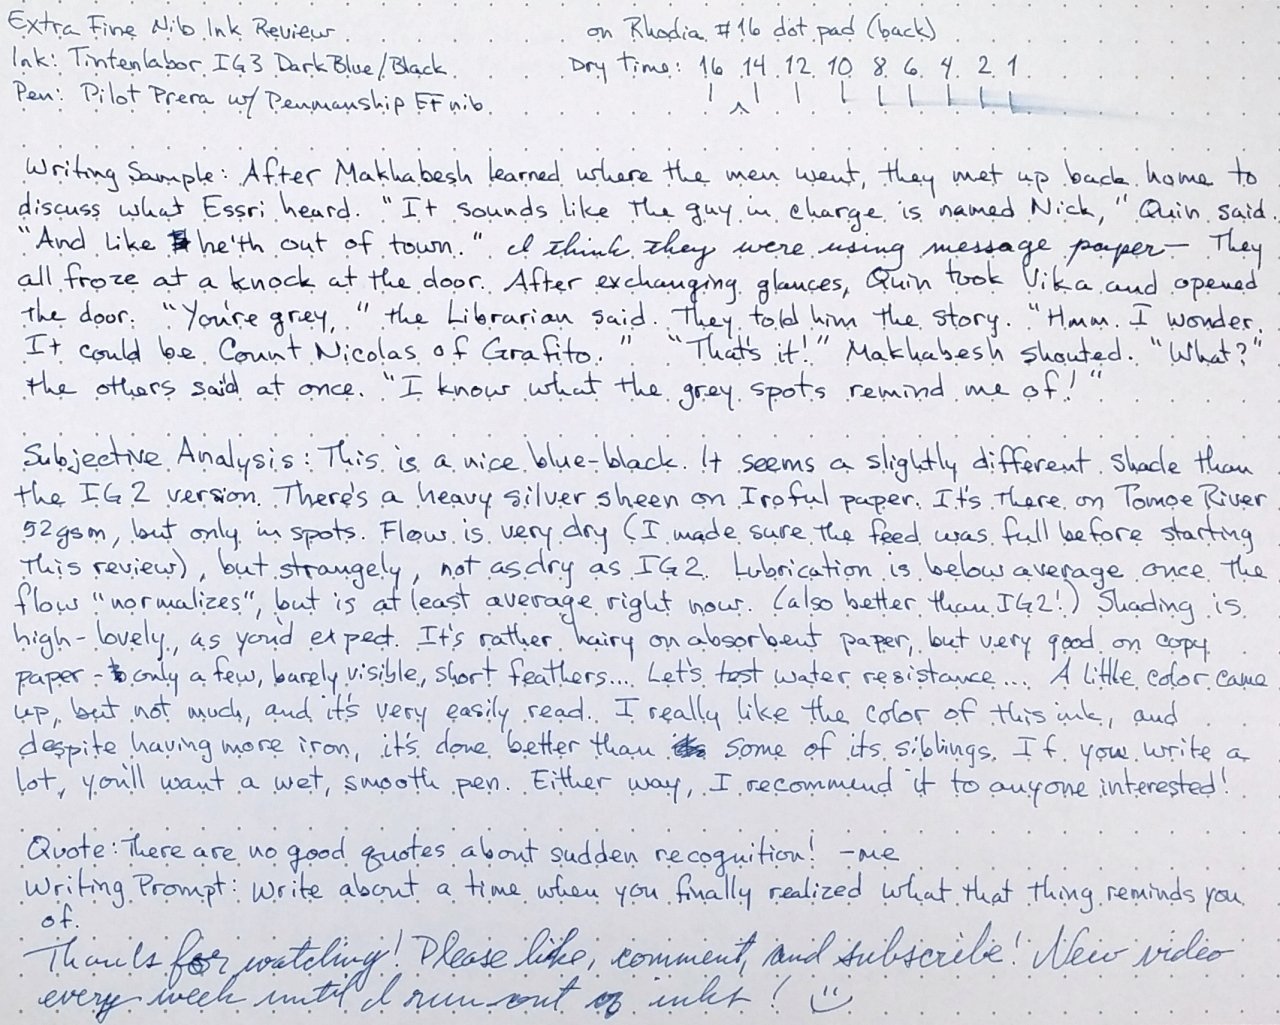 Extra Fine Nib Ink Review
on Rhodia #16 dot pad (back)
Ink: Tintenlabor IG3 DarkBlue/Black
Dry time: 16 14 12 10 8 6 4 2 1
Pen: Pilot Prera w/ Penmanship EF nib
Writing Sample: After Makhabesh learned where the men went, they met up back home to
discuss what Essri heard. "It sounds like the guy in charge is named Nick," Quin said.
"And like he'th out of town." I think they were using message paper— They
all froze at a knock at the door. After exchanging glances, Quin took Vika and opened
the door. "You're grey," the Librarian said. They told him the story. "Hmm. I wonder.
It could be Count Nicolas of Grafito." "That's it!" Makhabesh shouted. "What?"
the others said at once. "I know what the grey spots remind me of!"
Subjective Analysis: This is a nice blue-black. It seems a slightly different shade than
the IG2 version. There's a heavy silver sheen on Iroful paper. It's there on Tomoe River
52gsm, but only in spots. Flow is very dry (I made sure the feed was full before starting
this review), but strangely, not as dry as IG2. Lubrication is below average once the
flow "normalizes", but is at least average right now. (also better than IG2!) Shading is
high-lovely, as you'd expect. It's rather hairy on absorbent paper, but very good on copy
paper - only a few, barely visible, short feathers.... Let's test water resistance... A little color came
up, but not much, and it's very easily read. I really like the color of this ink, and
despite having more iron, it's done better than some of its siblings. If you write a
lot, you'll want a wet, smooth pen. Either way, I recommend it to anyone interested!
Quote: There are no good quotes about sudden recognition! -me
Writing Prompt: Write about a time when you finally realized what that thing reminds you
of.
Thanks for watching! Please like, comment, and subscribe! New video
every week until I run out of inks!